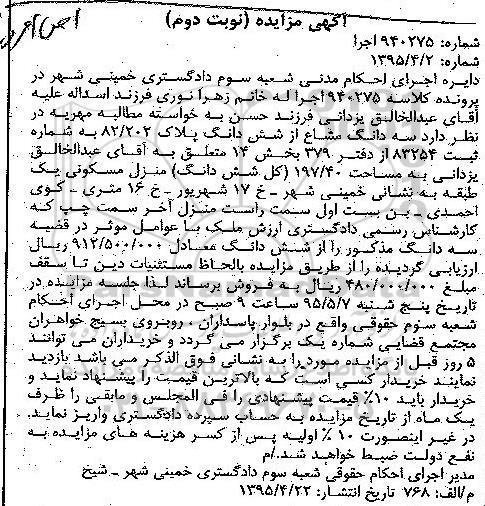 آگهی مزایده (نوبت دوم)
شماره: ۹۴۰۲۷۵ اجرا
شماره: ۱۳۹۵/۴/۲
دایره اجرای احکام مدنی شعبه سوم دادگستری خمینی شهر در
پرونده کلاسه ۹۴۰۲۷۵ اجرا له خانم زهرا نوری فرزند اسداله علیه
آقای عبدالخالق یزدانی فرزند حسن به خواسته مطالبه مهریه در
نظر دارد سه دانگ مشاع از شش دانگ پلاک ۸۲/۲۰۲ به شماره
ثبت ۸۳۲۵۴ از دفتر ۳۷۹ بخش ۱۴ متعلق به آقای عبدالخالق
یزدانی به مساحت ۱۹۷/۴۰ (کل شش دانگ) منزل مسکونی یک
طبقه به نشانی خمینی شهر ـ خ ۱۷ شهریور ـ خ ۱۶ متری ـ کوی
احمدی ـ بن بست اول سمت راست منزل آخر سمت چپ که
کارشناس رسمی دادگستری ارزش ملک با عوامل موثر در قضیه
سه دانگ مذکور را از شش دانگ معادل ۹۱۲/۵۰۰/۰۰۰ ریال
ارزیابی گردیده را از طریق مزایده بالحاظ مستثنیات دین تا سقف
مبلغ ۴۸۰/۰۰۰/۰۰۰ ریال به فروش برساند لذا جلسه مزایده در
تاریخ پنج شنبه ۹۵/۵/۷ ساعت ۹ صبح در محل اجرای احکام
شعبه سوم حقوقی واقع در بلوار پاسداران ـ روبروی بسیج خواهران
مجتمع قضایی شماره یک برگزار می گردد و خریداران می توانند
۵ روز قبل از مزایده مورد را به نشانی فوق الذکر می باشد بازدید
نمایند خریدار کسی است که بالاترین قیمت را پیشنهاد نماید و
خریدار باید ۱۰٪ قیمت پیشنهادی را فی المجلس و مابقی را ظرف
یک ماه از تاریخ مزایده به حساب سپرده دادگستری واریز نماید.
در غیر اینصورت ۱۰ ٪ اولیه پس از کسر هزینه های مزایده به
نفع دولت ضبط خواهد شد./م
مدیر اجرای احکام حقوقی شعبه سوم دادگستری خمینی شهر ـ شیخ
م/الف: ۷۶۸ تاریخ انتشار: ۱۳۹۵/۴/۲۲